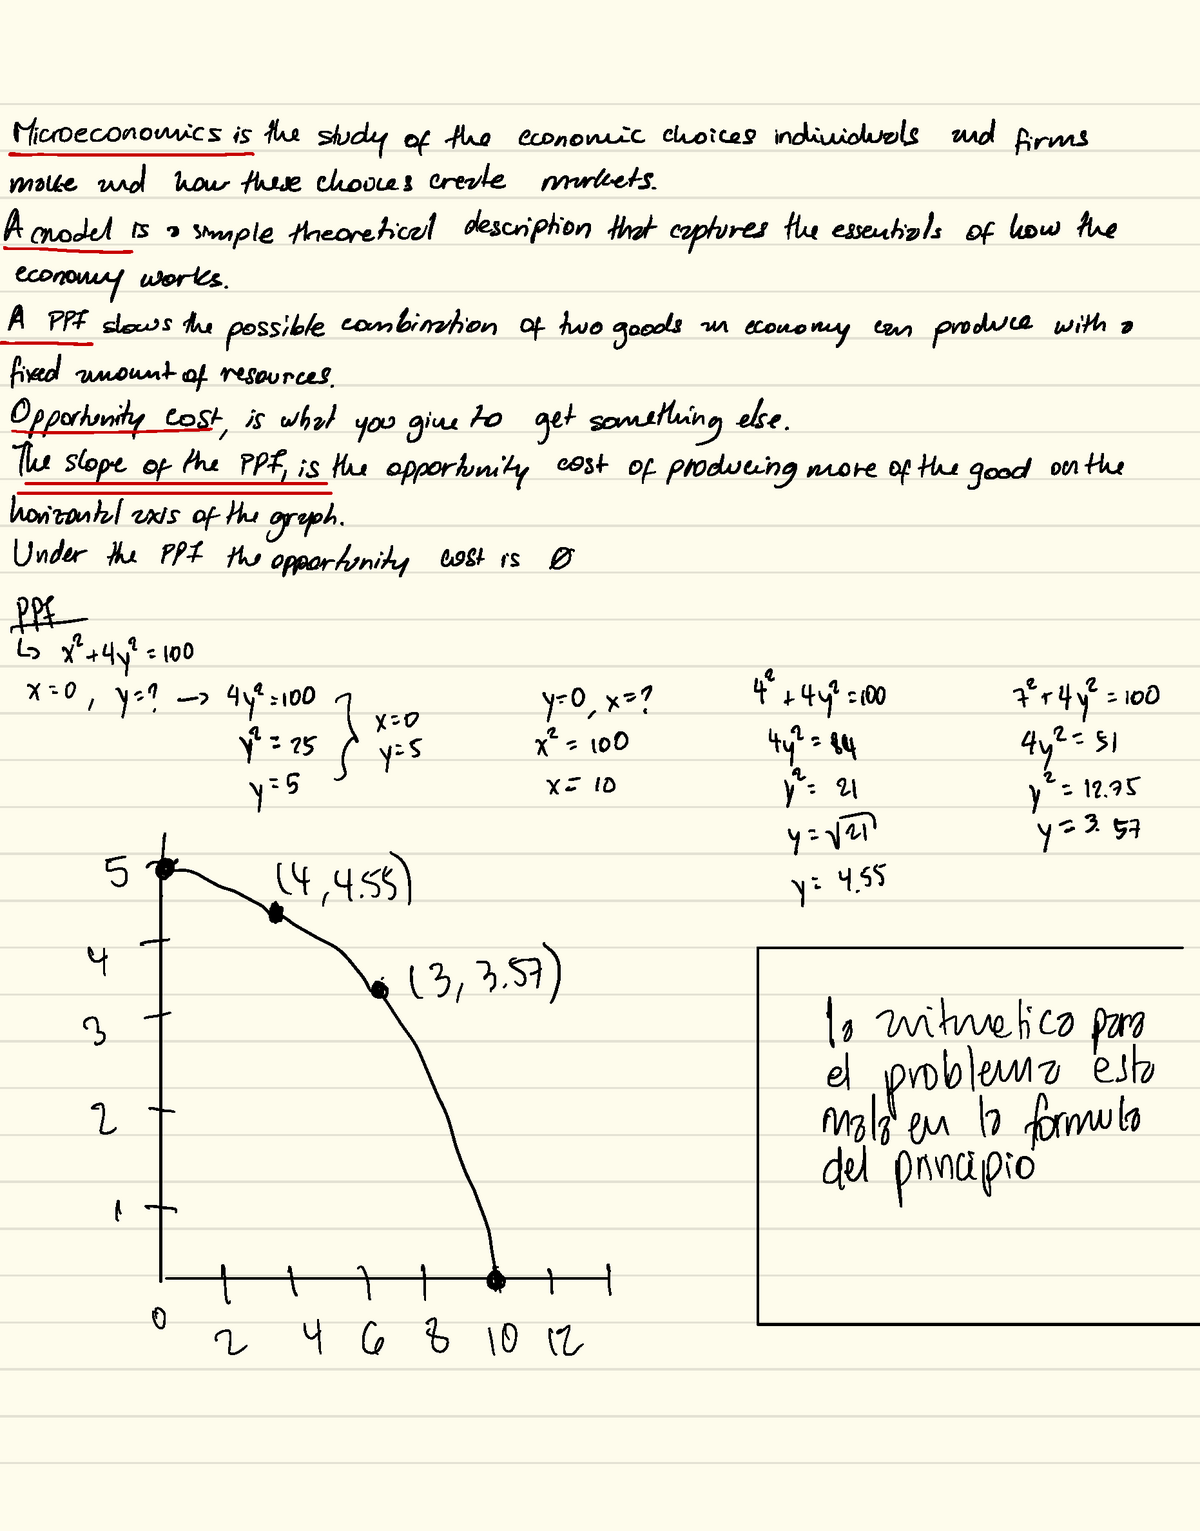 Microeconomics is the study of the economic choices individuals and firms
make and how these choices create markets.
A model is a simple theoretical description that captures the essentials of how the
economy works.
A PPF shows the possible combination of two goods an economy can produce with a
fixed amount of resources.
Opportunity cost, is what you give to get something else.
The slope of the PPF, is the opportunity cost of producing more of the good on the
horizontal axis of the graph.
Under the PPF the opportunity cost is Ø
PPF
↳ x²+4y²=100
x=0, y=? → 4y²=100
y² = 25
y=5
x=0
y=5
y=0, x=?
x² = 100
x= 10
4² + 4y² =100
4y² = 84
y² = 21
y = √21
y = 4.55
7² + 4y² = 100
4y² = 51
y² = 12.75
y = 3.57
5
4
3
2
1
(4, 4.55)
(3, 3.57)
0 2 4 6 8 10 12
la aritmetica para
el problema esta
mala en la formula
del principio